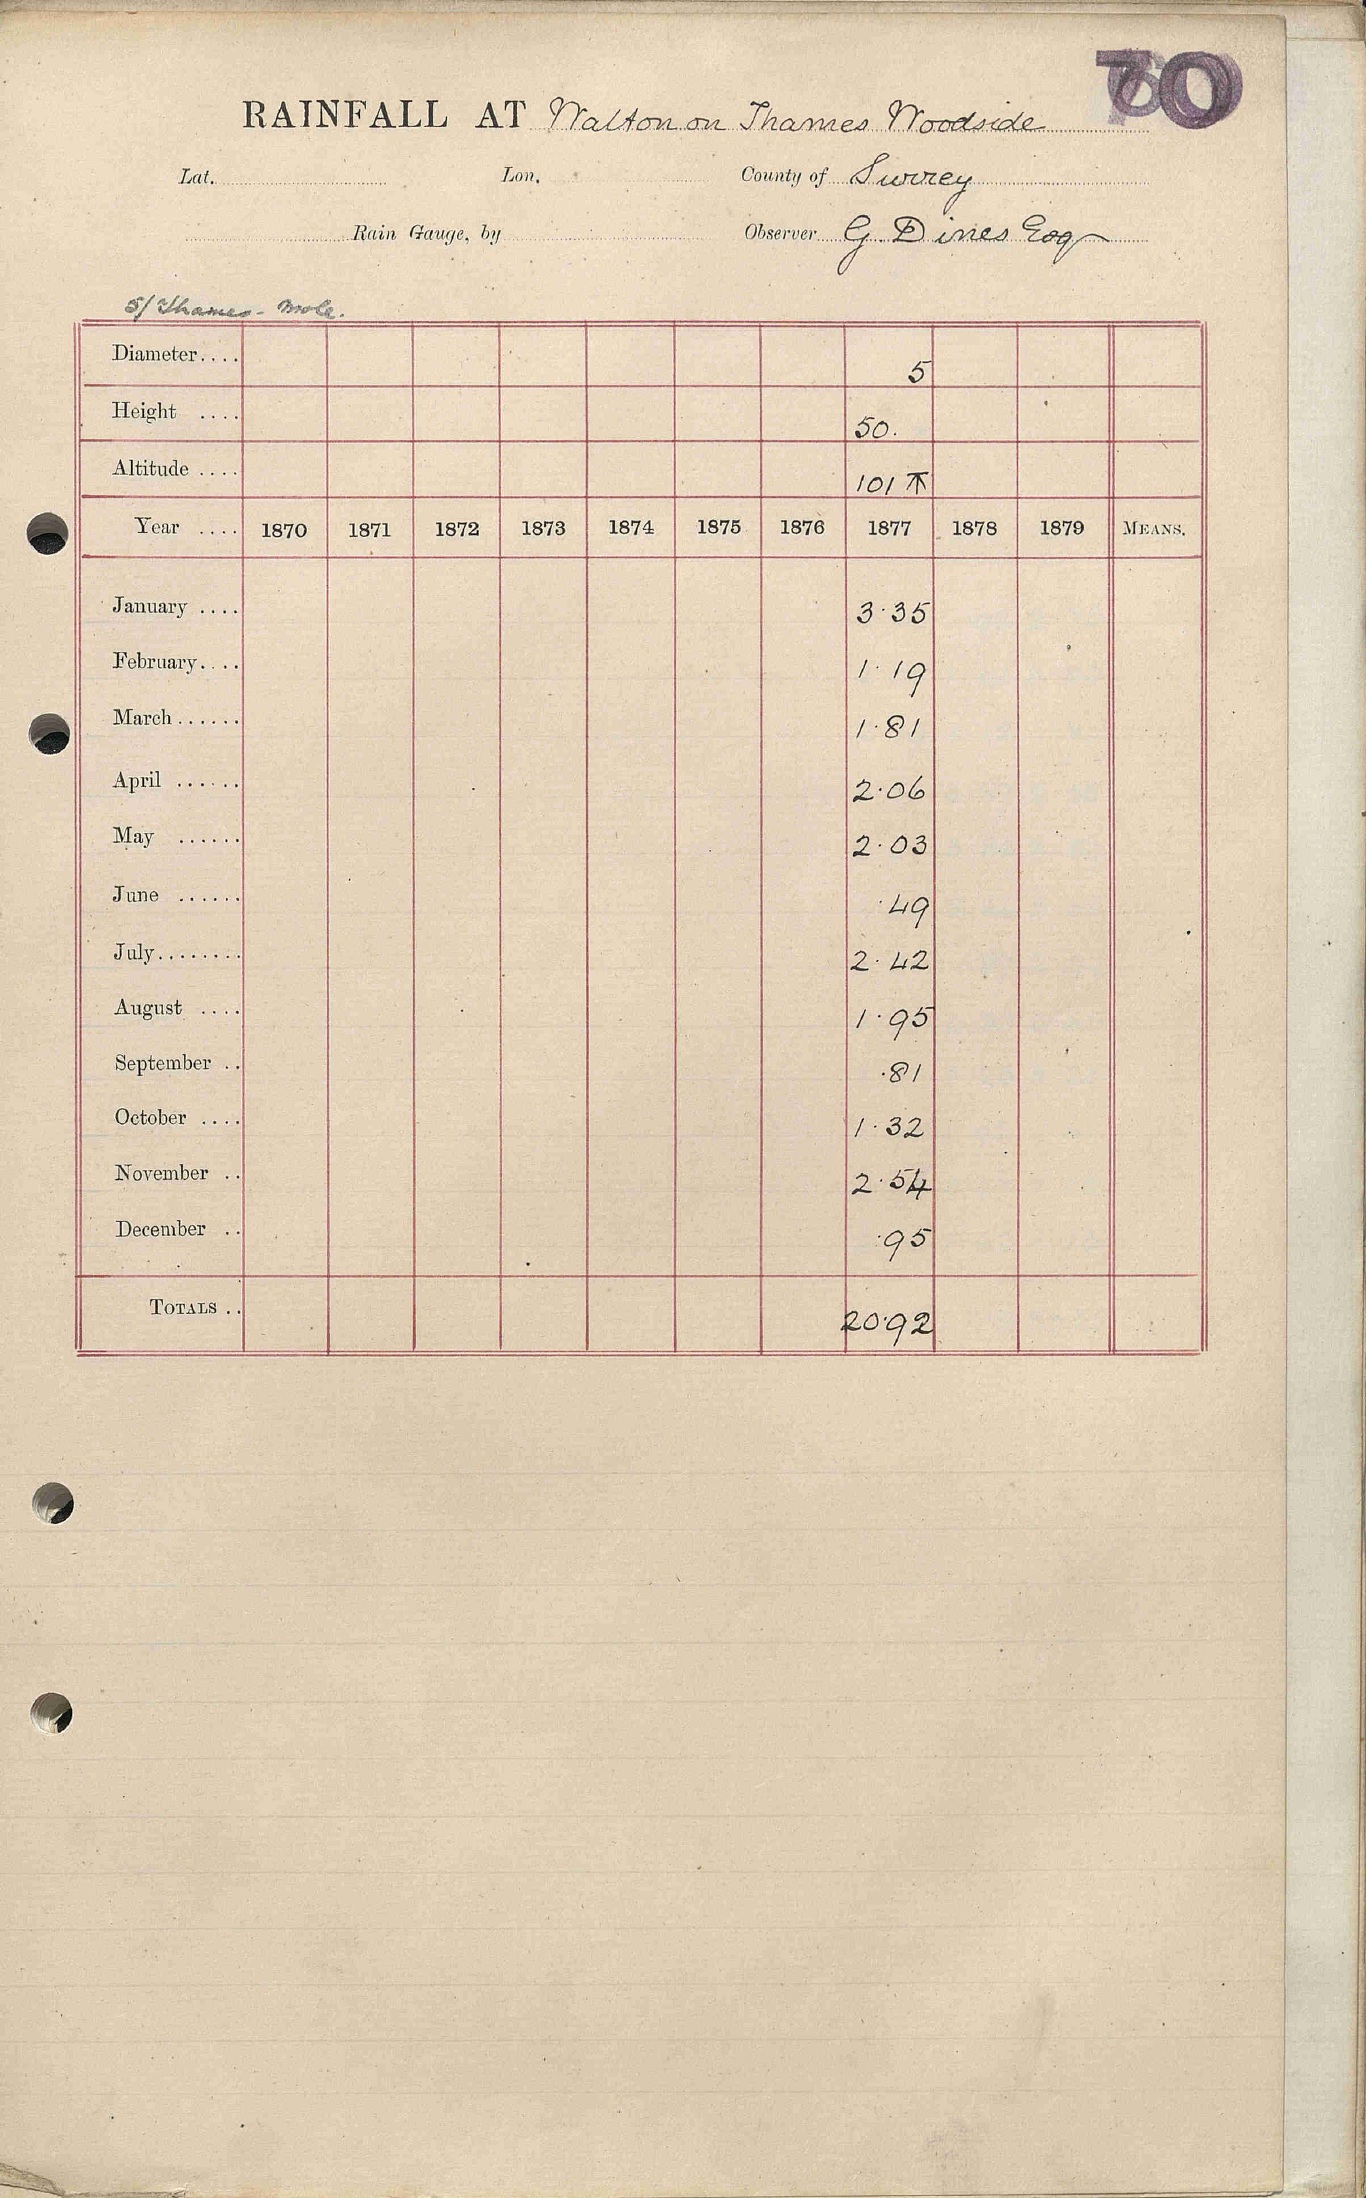 70
RAINFALL AT Walton on Thames Woodside
Lat. Lon. County of Surrey
Rain Gauge, by Observer G. Dines Esq
5/ Thames - Mole.
Diameter.... 5
Height .... 50.
Altitude .... 101
Year .... 1870 1871 1872 1873 1874 1875 1876 1877 1878 1879 MEANS.
January .... 3.35
February.... 1.19
March...... 1.81
April ...... 2.06
May ...... 2.03
June ...... .49
July........ 2.42
August .... 1.95
September .. .81
October .... 1.32
November .. 2.54
December .. .95
TOTALS .. 20.92